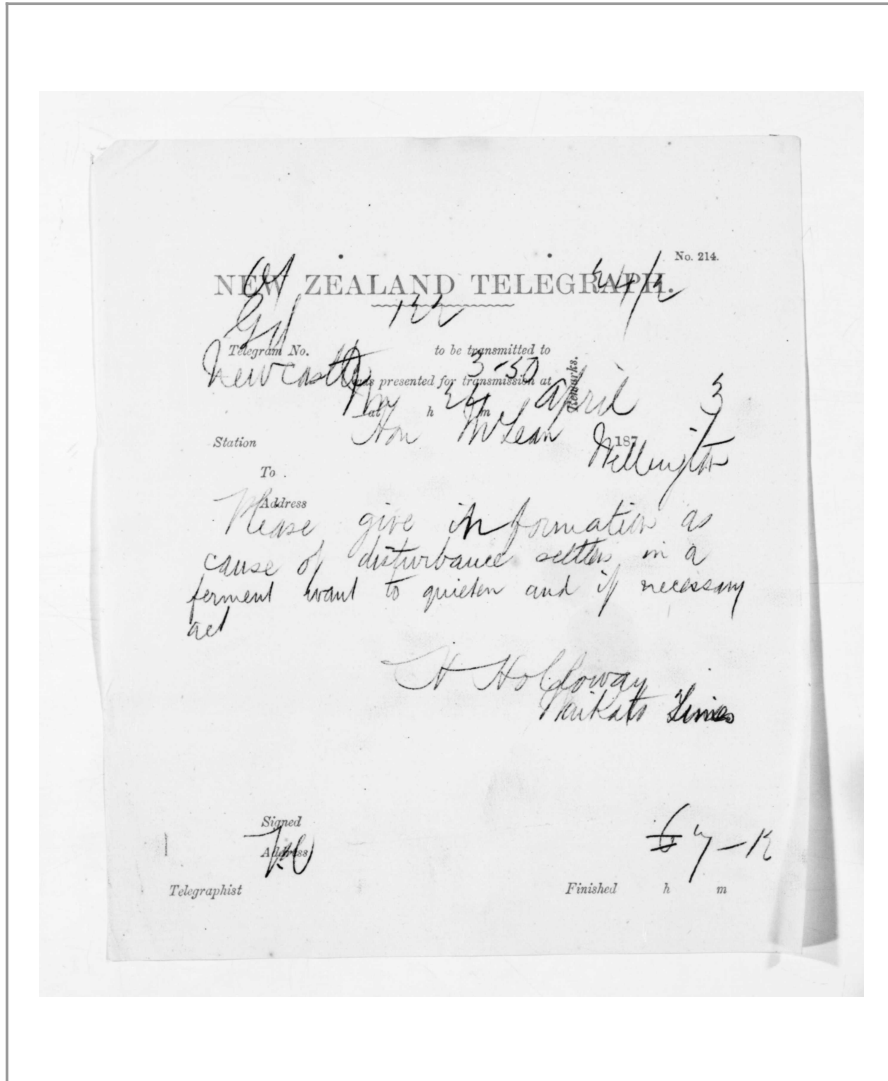 No. 214.
NEW ZEALAND TELEGRAPH.
122
Telegram No. to be transmitted to
Newcastle 3-50
was presented for transmission at Remarks.
at h 24 m April 3
Station Hon McLean 187 Wellington
To
Address
Please give information as
cause of disturbance settlers in a
ferment want to quieten and if necessary
act
H Holloway
Waikato Times
Signed
Address
Telegraphist Finished h m
7-12